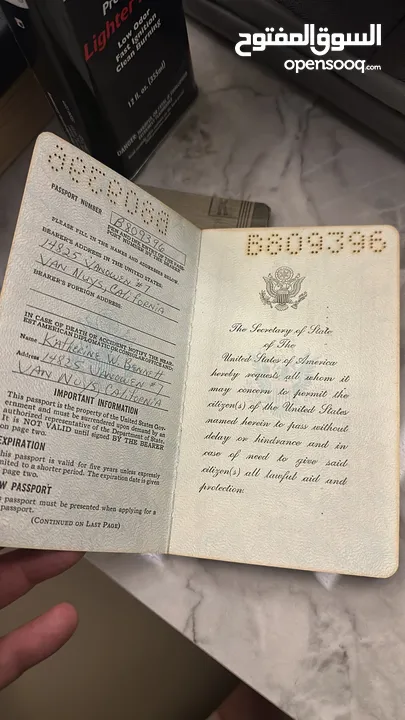 السوق المفتوح
opensooq.com
Lighter
Low Odor
Fast Ignition
Clean Burning
12 fl. oz. (355ml)
B809396
PASSPORT NUMBER
B809396
PLEASE FILL IN THE NAMES AND ADDRESSES BELOW.
BEARER'S ADDRESS IN THE UNITED STATES:
14825 VANOWEN #7
VAN NUYS, CALIFORNIA
BEARER'S FOREIGN ADDRESS:
IN CASE OF DEATH OR ACCIDENT NOTIFY THE NEAR-
EST AMERICAN DIPLOMATIC OR CONSUL
Name KATHERINE W. BENNETT
Address 14825 VANOWEN #7
VAN NUYS, CALIFORNIA
IMPORTANT INFORMATION
This passport is the property of the United States Gov-
ernment and must be surrendered upon demand by an
authorized representative of the Department of State.
It is NOT VALID until signed BY THE BEARER
on page two.
EXPIRATION
This passport is valid for five years unless expressly
limited to a shorter period. The expiration date is given
page two.
W PASSPORT
passport must be presented when applying for a
passport.
(CONTINUED ON LAST PAGE)
B809396
The Secretary of State
of The
United States of America
hereby requests all whom it
may concern to permit the
citizen(s) of the United States
named herein to pass without
delay or hindrance and in
case of need to give said
citizen(s) all lawful aid and
protection.